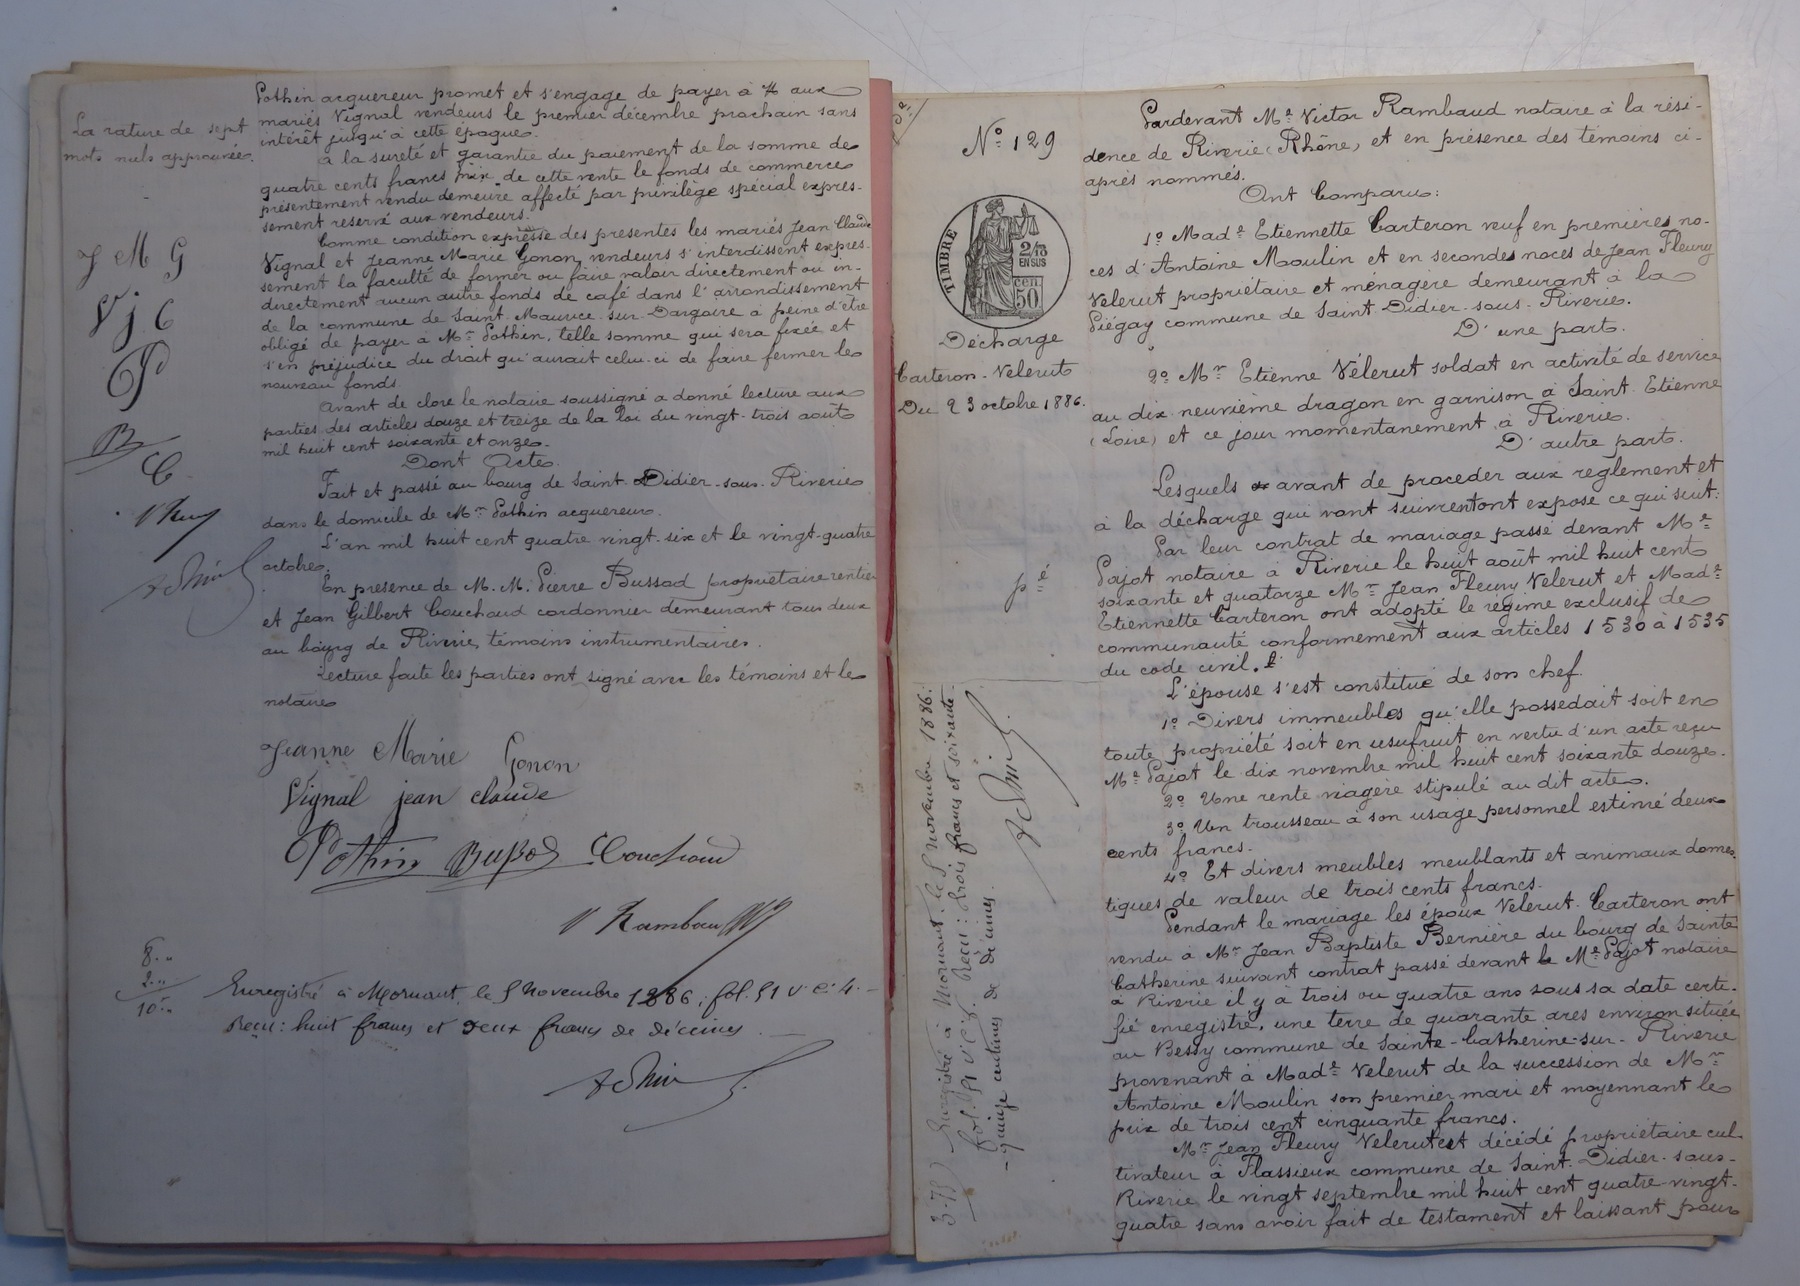 La rature de sept
mots nuls approuvée.
J M G
V j C
P
B
C
Pothin acquereur promet et s'engage de payer à aux
mariés Vignal vendeurs le premier décembre prochain sans
intérêt jusqu'à cette époque.
à la sureté et garantie du paiement de la somme de
quatre cents francs prix de cette vente le fonds de commerce
présentement vendu demeure affecté par privilège spécial expres-
sement reservé aux vendeurs.
Comme condition expresse des presentes les mariés Jean Claude
Vignal et Jeanne Marie Gonon, vendeurs s'interdissent expres-
sement la faculté de former ou faire valoir directement ou in-
directement aucun autre fonds de café dans l'arrondissement
de la commune de Saint-Maurice-sur-Dargoire à peine d'être
obligé de payer à Mr Pothin, telle somme qui sera fixée et
s'en préjudice du droit qu'aurait celui-ci de faire fermer le
nouveau fonds.
Avant de clore le notaire soussigné a donné lecture aux
parties des articles douze et treize de la loi du vingt-trois août
mil huit cent soixante et onze.
Dont Acte.
Fait et passé au bourg de Saint Didier-sous-Riverie
dans le domicile de Mr Pothin acquereur.
L'an mil huit cent quatre vingt-six et le vingt-quatre
octobre.
En presence de M.M. Pierre Bussod propriétaire rentier
et Jean Gilbert Couchoud cordonnier demeurant tous deux
au bourg de Riverie, témoins instrumentaires.
Lecture faite les parties ont signé avec les témoins et le
notaire
Jeanne Marie Gonon
Vignal jean claude
Pothin Bussod Couchoud
V Rambaud
8. "
2. "
10. "
Enregistré à Mornant, le 5 Novembre 1886, fol. 51 v. c. 4.
Reçu: huit francs et deux francs de décimes.
N° 129
TIMBRE
2/10
EN SUS
50 cen
Décharge
Carteron-Velerut
Du 23 octobre 1886.
Enregistré à Mornant le 5 Novembre 1886.
fol. 51 v. c. Reçu: trois francs et soixante-
quinze centimes de décimes.
3.75
Pardevant Me Victor Rambaud notaire à la rési-
dence de Riverie (Rhône) et en présence des témoins ci-
après nommés.
Ont Comparu:
1° Made Etiennette Carteron veuf en premières no-
ces d'Antoine Moulin et en secondes noces de Jean Fleury
Velerut propriétaire et ménagère demeurant à la
Piégay commune de Saint-Didier-sous-Riverie.
D'une part.
2° Mr Etienne Vélerut soldat en activité de service
au dix neuvième dragon en garnison à Saint-Etienne
(Loire) et ce jour momentanement à Riverie.
D'autre part.
Lesquels avant de proceder aux reglement et
à la décharge qui vont suivre ont exposé ce qui suit:
Par leur contrat de mariage passé devant Me
Pajot notaire à Riverie le huit août mil huit cent
soixante et quatorze Mr Jean Fleury Velerut et Made
Etiennette Carteron ont adopté le régime exclusif de
communauté conformement aux articles 1530 à 1535
du code civil.
L'épouse s'est constitué de son chef.
1° Divers immeubles qu'elle possedait soit en
toute propriété soit en usufruit en vertu d'un acte reçu
Me Pajot le dix novembre mil huit cent soixante douze.
2° Une rente viagère stipulé au dit acte.
3° Un trousseau à son usage personnel estimé deux
cents francs.
4° Et divers meubles meublants et animaux domes-
tiques de valeur de trois cents francs.
Pendant le mariage les époux Velerut-Carteron ont
vendu à Mr Jean Baptiste Bernière du bourg de Sainte
Catherine suivant contrat passé devant le Me Pajot notaire
à Riverie il y à trois ou quatre ans sous sa date certi-
fié enregistré, une terre de quarante ares environ située
au Bessy commune de Sainte-Catherine-sur-Riverie
provenant à Made Velerut de la succession de Mr
Antoine Moulin son premier mari et moyennant le
prix de trois cent cinquante francs.
Mr Jean Fleury Velerut est décédé propriétaire cul-
tivateur à Flassieux commune de Saint-Didier-sous-
Riverie le vingt septembre mil huit cent quatre-vingt-
quatre sans avoir fait de testament et laissant pour